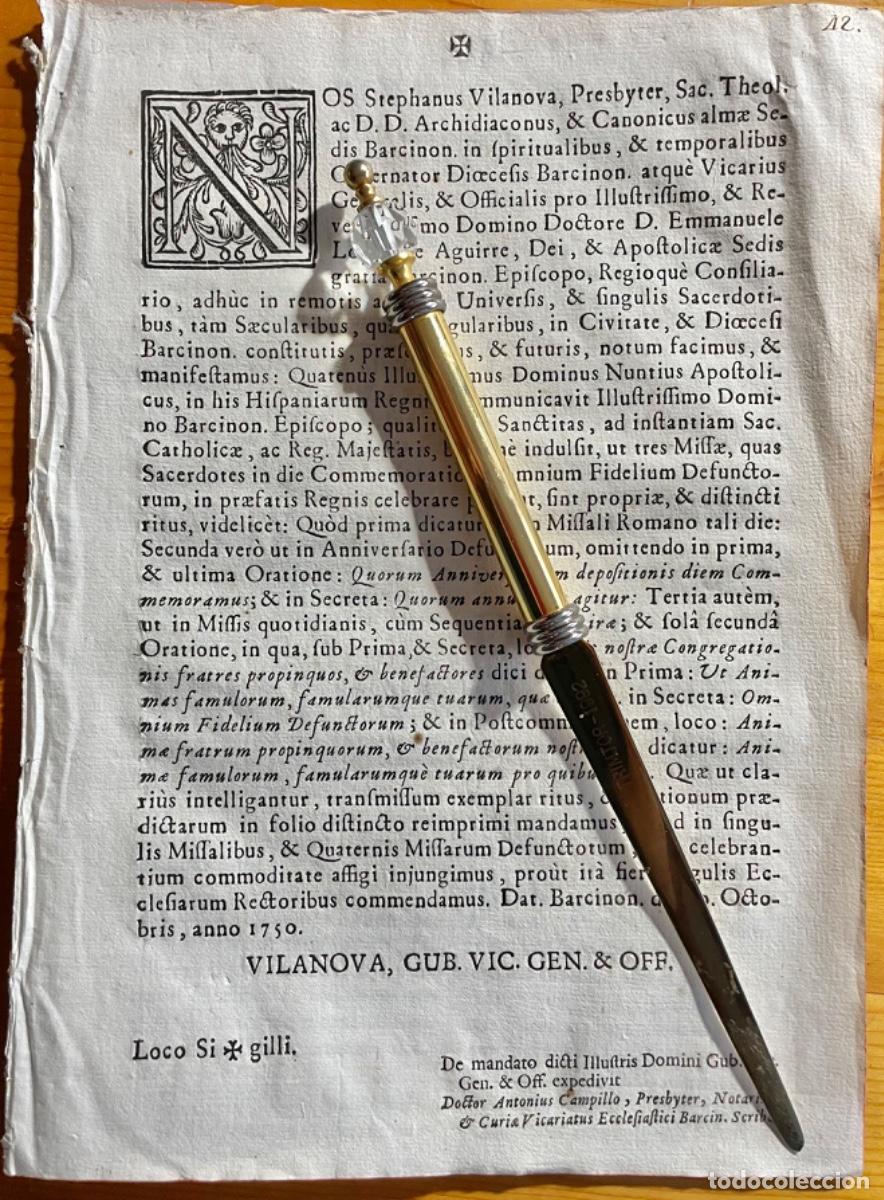 12.
✠
NOS Stephanus Vilanova, Presbyter, Sac. Theol.
ac D. D. Archidiaconus, & Canonicus almæ Se-
dis Barcinon. in ſpiritualibus, & temporalibus
nator Diœceſis Barcinon. atquè Vicarius
lis, & Officialis pro Illuſtriſſimo, & Re-
mo Domino Doctore D. Emmanuele
Aguirre, Dei, & Apoſtolicæ Sedis
gratia cinon. Epiſcopo, Regioquè Conſilia-
rio, adhùc in remotis Univerſis, & ſingulis Sacerdoti-
bus, tàm Sæcularibus, gularibus, in Civitate, & Diœceſi
Barcinon. conſtitutis, præſ s, & futuris, notum facimus, &
manifeſtamus: Quatenùs Illu mus Dominus Nuntius Apoſtoli-
cus, in his Hiſpaniarum Regni mmunicavit Illuſtriſſimo Domi-
no Barcinon. Epiſcopo; qualit Sanctitas, ad inſtantiam Sac.
Catholicæ, ac Reg. Majeſtatis, nè indulſit, ut tres Miſſæ, quas
Sacerdotes in die Commemoratio mnium Fidelium Defuncto-
rum, in præfatis Regnis celebrare t, ſint propriæ, & diſtincti
ritus, videlicèt: Quòd prima dicatur n Miſſali Romano tali die:
Secunda verò ut in Anniverſario Defu um, omittendo in prima,
& ultima Oratione: Quorum Anniver m depoſitionis diem Com-
memoramus; & in Secreta: Quorum annu agitur: Tertia autèm,
ut in Miſſis quotidianis, cùm Sequentia iræ; & ſolâ ſecundâ
Oratione, in qua, ſub Prima, & Secreta, lo noſtræ Congregatio-
nis fratres propinquos, & benefactores dici in Prima: Ut Ani-
mas famulorum, famularumque tuarum, quæ in Secreta: Om-
nium Fidelium Defunctorum; & in Poſtcomm nem, loco: Ani-
mæ fratrum propinquorum, & benefactorum noſt dicatur: Ani-
mæ famulorum, famularumquè tuarum pro quibu . Quæ ut cla-
riùs intelligantur, tranſmiſſum exemplar ritus, tionum præ-
dictarum in folio diſtincto reimprimi mandamus, d in ſingu-
lis Miſſalibus, & Quaternis Miſſarum Defunctotum, celebran-
tium commoditate affigi injungimus, proùt ità fier gulis Ec-
cleſiarum Rectoribus commendamus. Dat. Barcinon. Octo-
bris, anno 1750.
VILANOVA, GUB. VIC. GEN. & OFF.
Loco Si ✠ gilli.
De mandato dicti Illuſtris Domini Gub.
Gen. & Off. expedivit
Doctor Antonius Campillo, Presbyter, Notari
& Curiæ Vicariatus Eccleſiaſtici Barcin. Scrib
todocoleccion